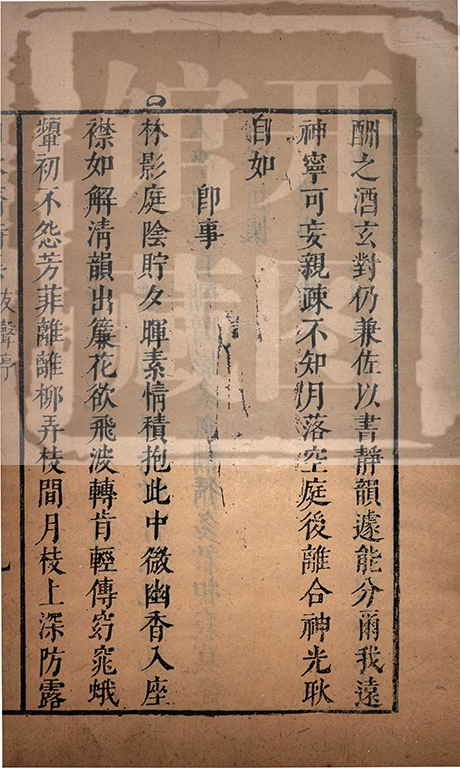 酬之酒玄對仍兼佐以書靜韻遽能分爾我遠
神寧可妄親疎不知月落空庭後離合神光耿
自如
即事
林影庭陰貯夕暉素情積抱此中微幽香入座
襟如解清韻出簾花欲飛波轉肯輕傳窈窕蛾
顰初不怨芳菲離離柳弄枝間月枝上深防露
开图
馆藏